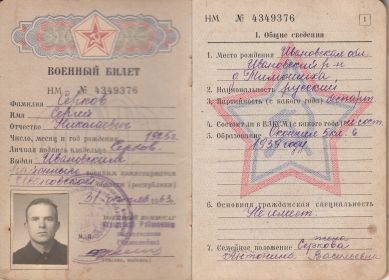 ВОЕННЫЙ БИЛЕТ
НМ № 4349376
Фамилия Серков
Имя Сергей
Отчество Николаевич
Число, месяц и год рождения
Личная подпись владельца Серков.
Выдан Ивановским
районным военным комиссариатом
Ивановской области (республики)
М.П.
НМ № 4349376
1
I. Общие сведения
1. Место рождения Ивановская обл.
Ивановский р-н
д.
2. Национальность русский
3. Партийность (с какого года) беспарт.
4. Состоял ли в ВЛКСМ (с какого года) не сост.
5. Образование Окончил 6 кл. в
1939 году
6. Основная гражданская специальность
Не имеет.
7. Семейное положение жена
Серкова
Антонина Васильевна